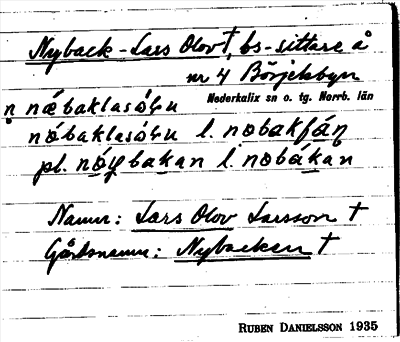 Nyback-Lars Olov †, bs-sittare å
nr 4 Börjelsbyn
Nederkalix sn o. tg. Norrb. län
n næ̀baklasóƕu
nöbaklasóƕu l. nobakfáṇ
pl. nöẏbakan l. nobákan
Namn: Lars Olov Larsson †
Gårdsnamn: Nybacken †
RUBEN DANIELSSON 1935